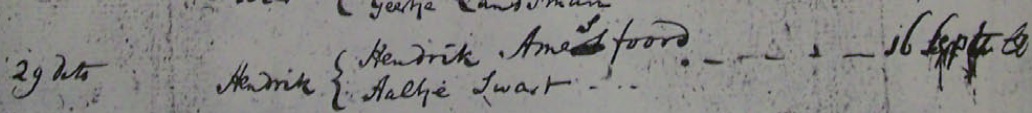 Geertje Landsman
29 dato Hendrik { Hendrik Amesfoord. - - - - - 16 Septe
Aaltje Swart - - -